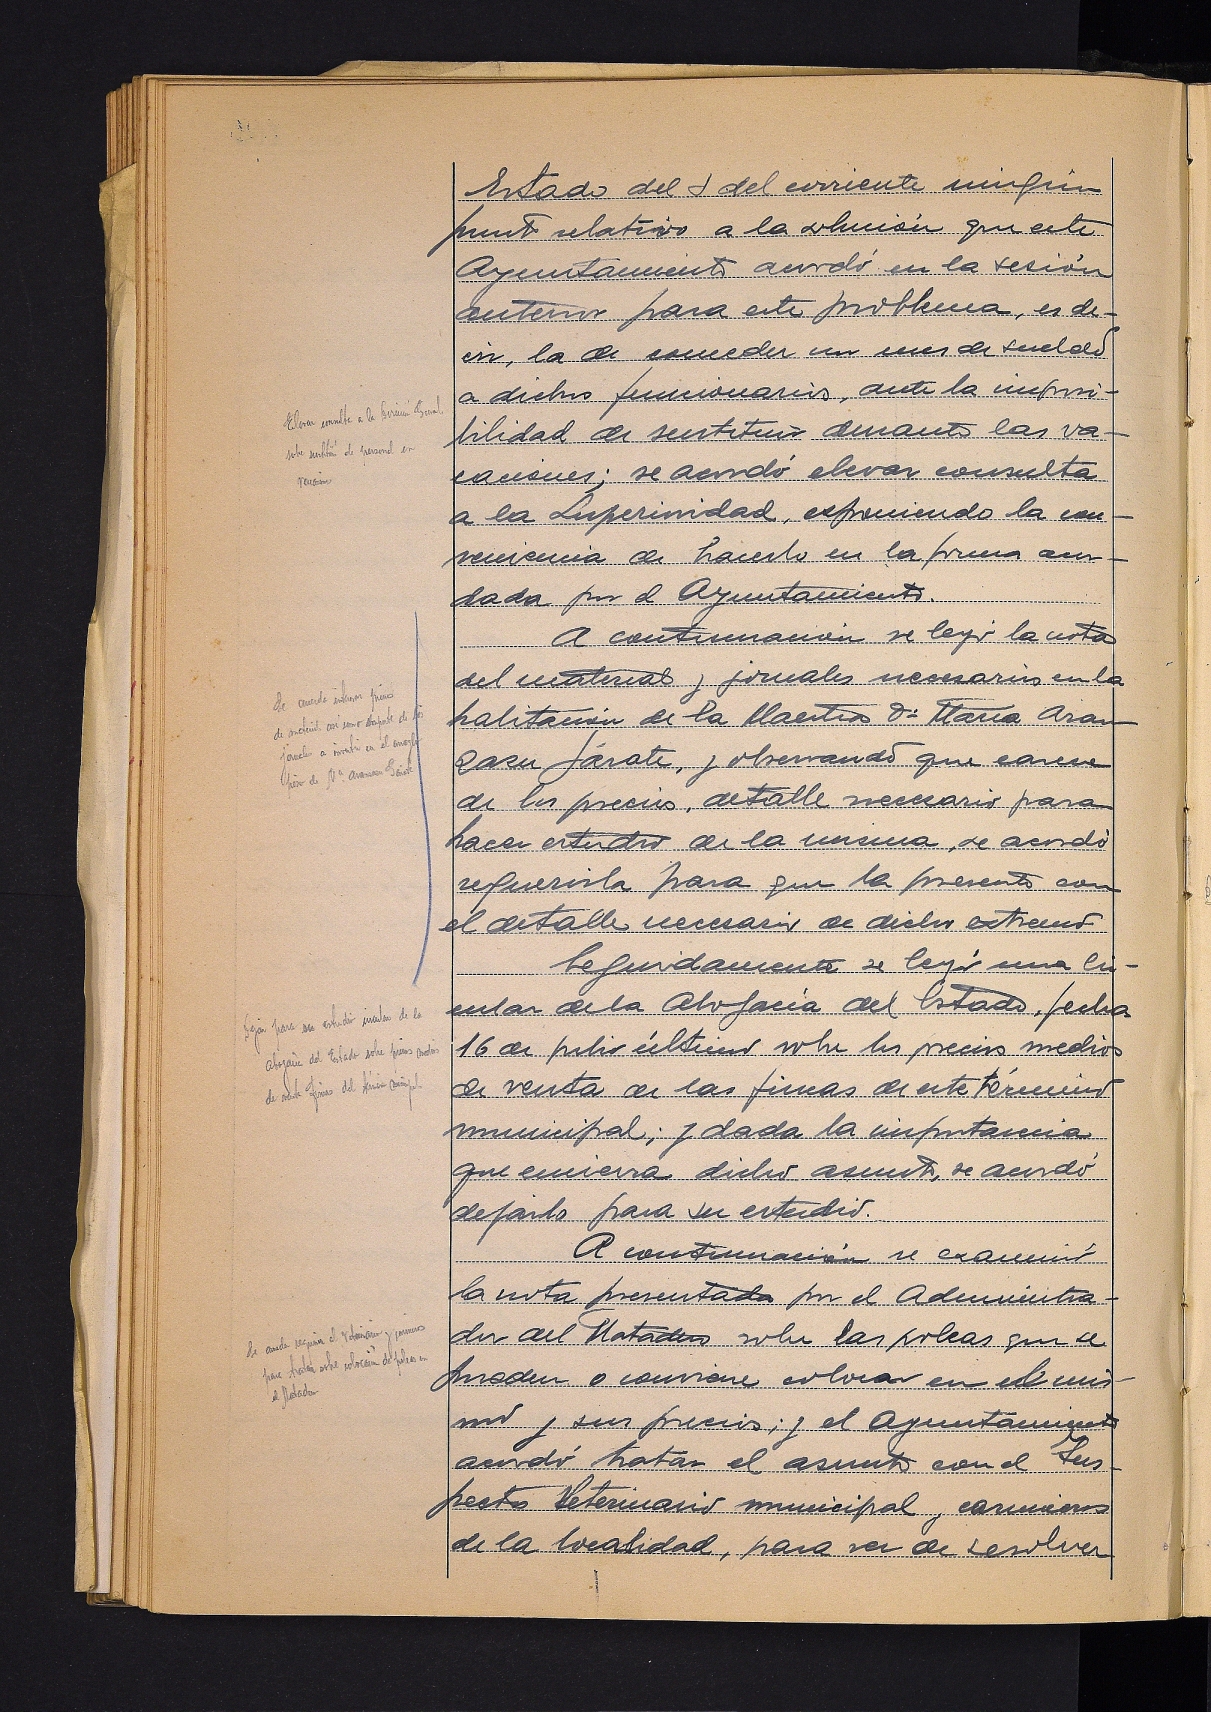 Estado del 8 del corriente ningún
punto relativo a la solución que este
Ayuntamiento acordó en la sesión
anterior para este problema, es de-
cir, la de conceder un mes de sueldo
a dichos funcionarios, ante la imposi-
bilidad de sustituir durante las va-
caciones; se acordó elevar consulta
a la Superioridad, exponiendo la con-
veniencia de hacerlo en la forma acor-
dada por el Ayuntamiento.
A continuación se leyó la nota
del material y jornales necesarios en la
habitación de la Maestra Dª María Aran-
zazu Zárate, y observando que carece
de los precios, detalle necesario para
hacer estudio de la misma, se acordó
requerirla para que la presente con
el detalle necesario de dicho extremo
Seguidamente se leyó una Cir-
cular de la Abogacía del Estado, fecha
16 de julio último sobre los precios medios
de venta de las fincas de este término
municipal; y dada la importancia
que encierra dicho asunto, se acordó
dejarlo para su estudio.
A continuación se examinó
la nota presentada por el Administra-
dor del Matadero sobre las poleas que se
pueden o conviene colocar en el mis-
mo y sus precios; y el Ayuntamiento
acordó tratar el asunto con el Ins-
pector Veterinario municipal y carniceros
de la localidad, para ver de resolver
Elevar consulta a la
sobre de personal en
vacación
Se acuerda precios
de material así como de los
jornales a invertir en el
de Mª Aranzazu Zárate
para su estudio circular de la
Abogacía del Estado sobre precios medios
de venta fincas del término municipal
Se acuerda requerir al Veterinario y carniceros
para tratar sobre colocación de poleas en
el Matadero